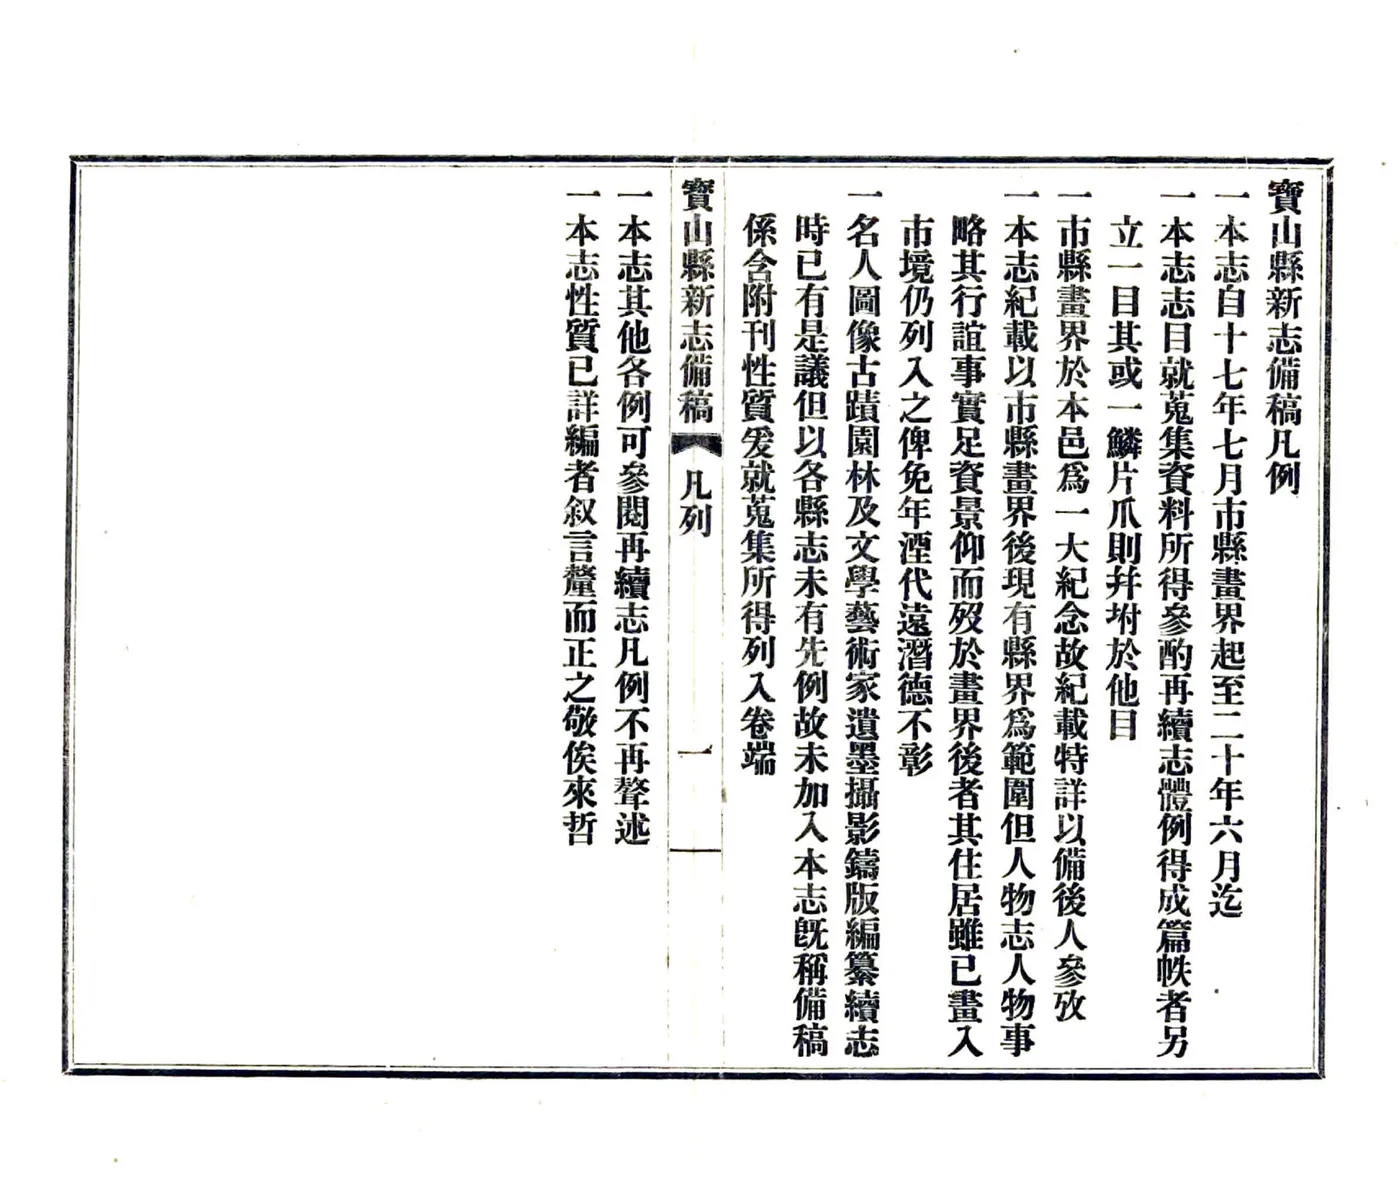 寶山縣新志備稿凡例
一本志自十七年七月市縣畫界起至二十年六月迄
一本志志目就蒐集資料所得參酌再續志體例得成篇帙者另
立一目其或一鱗片爪則幷坿於他目
一市縣畫界於本邑爲一大紀念故紀載特詳以備後人參攷
一本志紀載以市縣畫界後現有縣界爲範圍但人物志人物事
略其行誼事實足資景仰而歿於畫界後者其住居雖已畫入
市境仍列入之俾免年湮代遠潛德不彰
一名人圖像古蹟園林及文學藝術家遺墨攝影鑄版編纂續志
時已有是議但以各縣志未有先例故未加入本志旣稱備稿
係含附刊性質爰就蒐集所得列入卷端
寶山縣新志備稿 凡列 一
一本志其他各例可參閱再續志凡例不再聱述
一本志性質已詳編者叙言釐而正之敬俟來哲